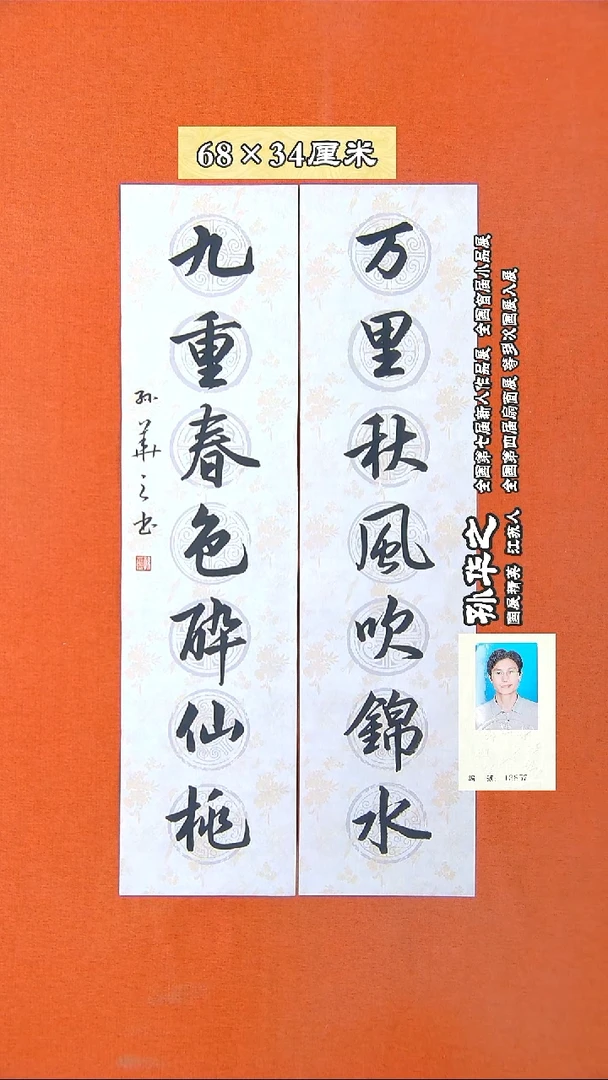 68×34厘米
万里秋風吹錦水
九重春色醉仙桃
孙華之书
全国第七届新人作品展 全国首届小品展
全国第四届扇面展 等多次国展入展
孙华之
国展精英 江苏人
编 号: